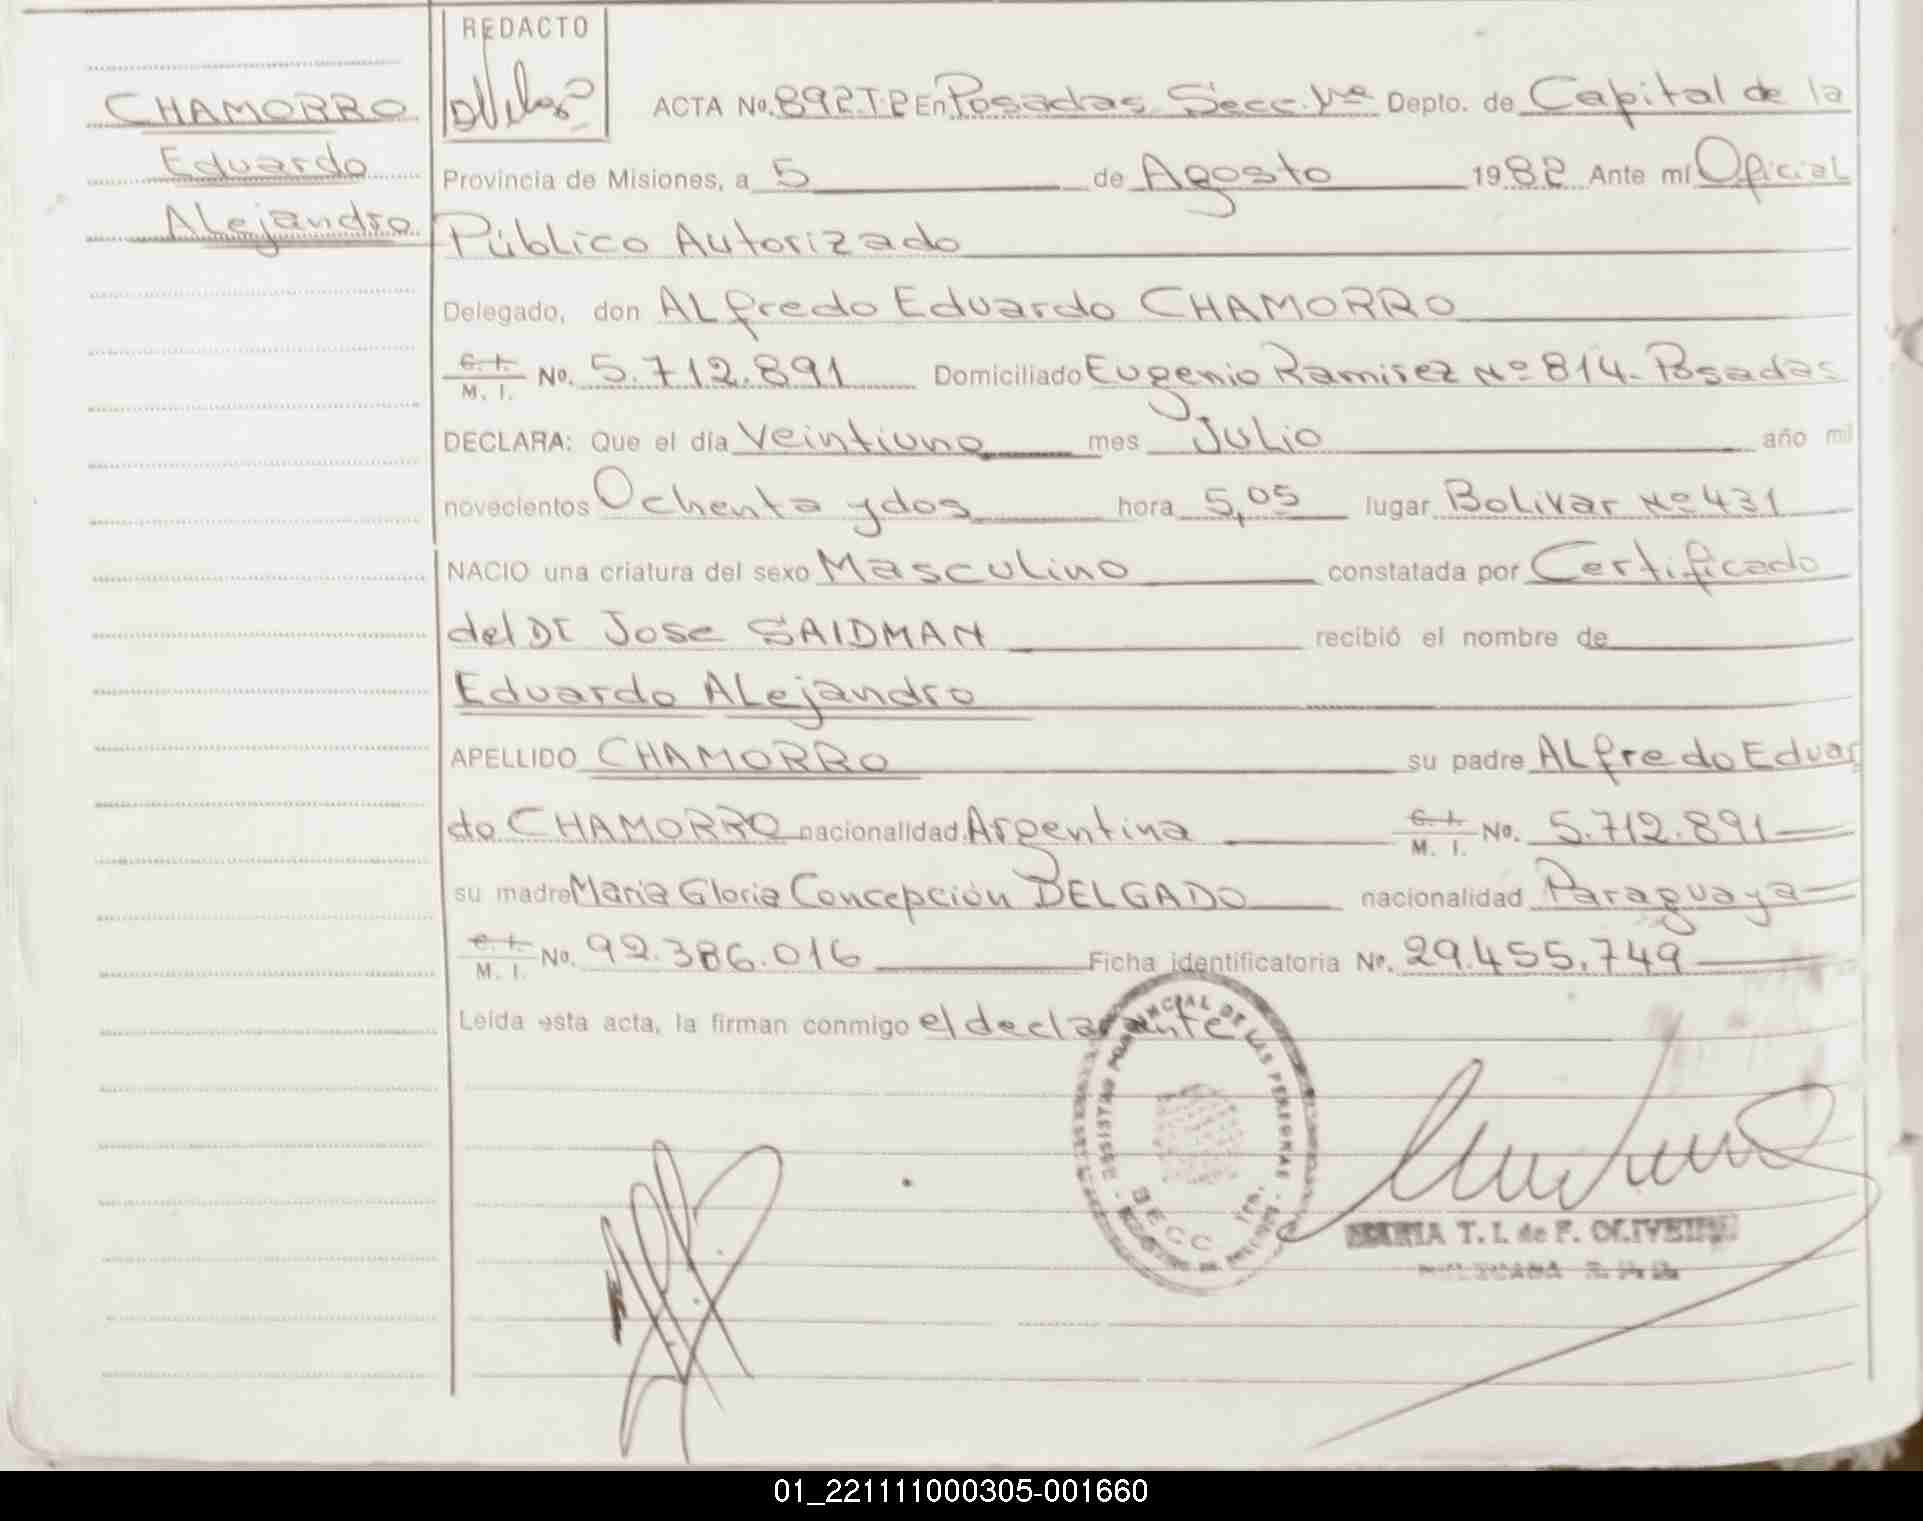 REDACTO
CHAMORRO
Eduardo
Alejandro
ACTA No. 892 T.2 En Posadas Secc. 1ra Depto. de Capital de la
Provincia de Misiones, a 5 de Agosto 1982 Ante mí Oficial
Público Autorizado
Delegado, don ALfredo Eduardo CHAMORRO
C. I. / M. I. No. 5.712.891 Domiciliado Eugenio Ramirez Nº 814- Posadas
DECLARA: Que el día Veintiuno mes Julio año mil
novecientos Ochenta y dos hora 5,05 lugar Bolivar Nº 431
NACIO una criatura del sexo Masculino constatada por Certificado
del Dr Jose SAIDMAN recibió el nombre de
Eduardo Alejandro
APELLIDO CHAMORRO su padre ALfredo Eduar
do CHAMORRO nacionalidad Argentina C. I. / M. I. No. 5.712.891
su madre Maria Gloria Concepción DELGADO nacionalidad Paraguaya
C. I. / M. I. No. 92.386.016 Ficha identificatoria No. 29.455.749
Leída esta acta, la firman conmigo el declarante
PROVINCIAL DE LAS PERSONAS
SECC 1ra.
MARIA T. I. de F. OLIVEIRA
01_221111000305-001660